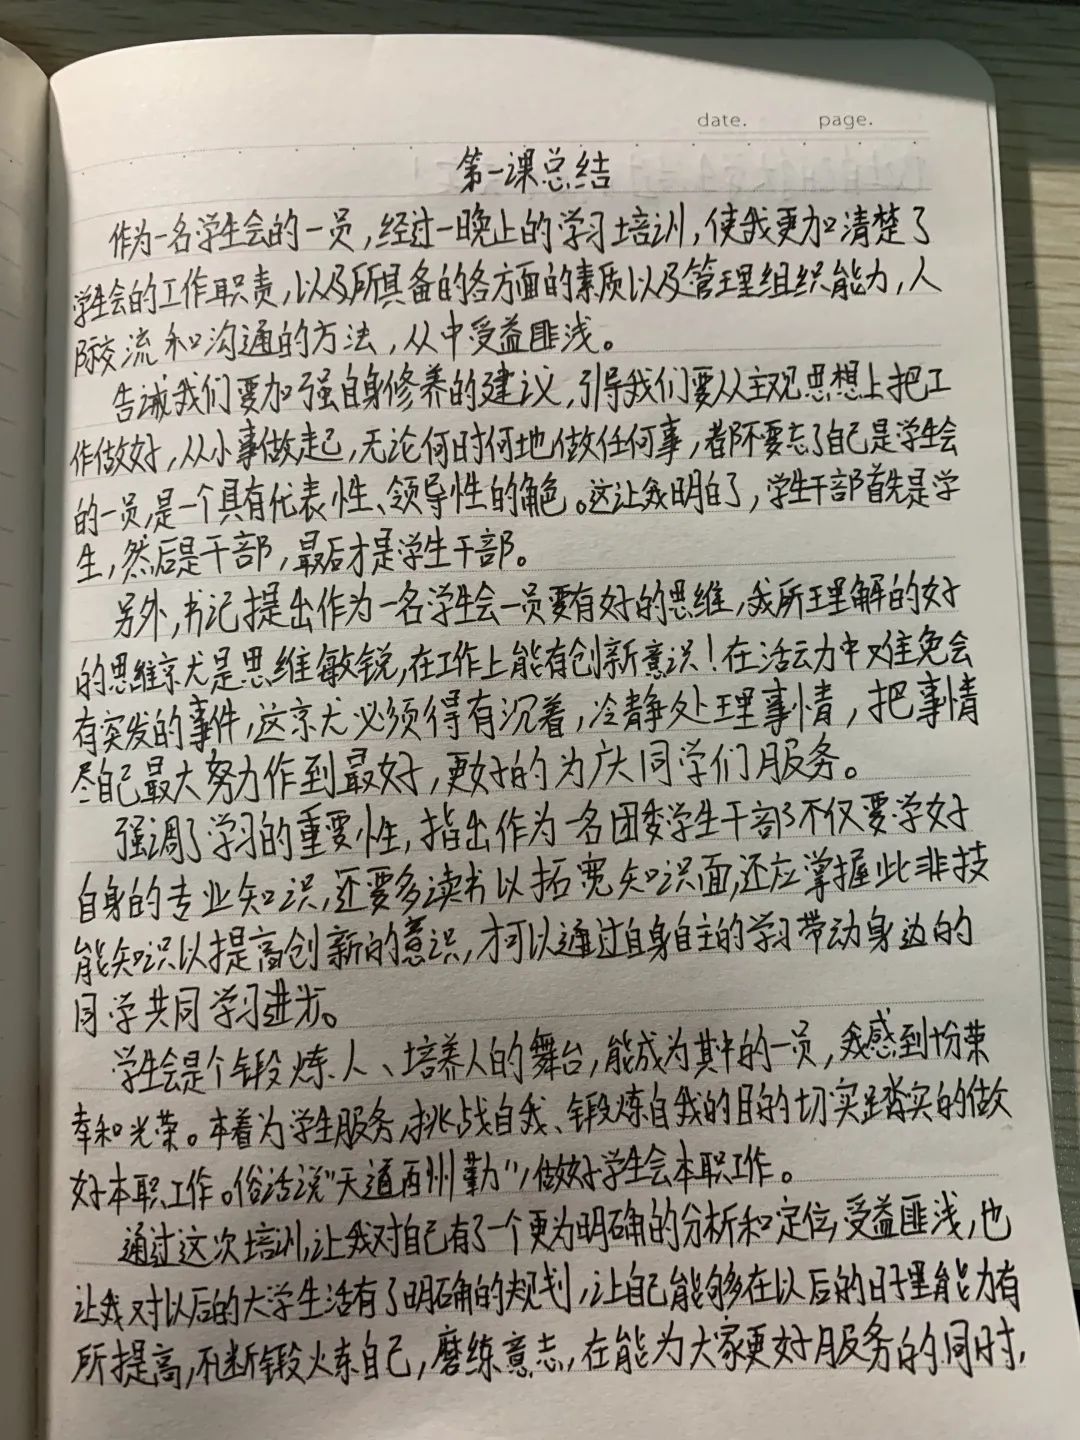 date.
page.
第一课总结
作为一名学生会的一员,经过一晚上的学习培训,使我更加清楚了
学生会的工作职责,以及所具备的各方面的素质以及管理组织能力,人
际交流和沟通的方法,从中受益匪浅。
告诫我们要加强自身修养的建议,引导我们要从主观思想上把工
作做好,从小事做起,无论何时何地做任何事,都不要忘了自己是学生会
的一员,是一个具有代表性、领导性的角色。这让我明白了,学生干部首先是学
生,然后是干部,最后才是学生干部。
另外,书记提出作为一名学生会一员要有好的思维,我所理解的好
的思维就是思维敏锐,在工作上能有创新意识!在活动中难免会
有突发的事件,这就必须得有沉着,冷静处理事情,把事情
尽自己最大努力作到最好,更好的为广大同学们服务。
强调了学习的重要性,指出作为一名团委学生干部不仅要学好
自身的专业知识,还要多读书以拓宽知识面,还应掌握此非技
能知识以提高创新的意识,才可以通过自身自主的学习带动身边的
同学共同学习进步。
学生会是个锻炼人、培养人的舞台,能成为其中的一员,我感到份荣
幸和光荣。本着为学生服务,挑战自我、锻炼自我的目的切实踏实的做
好本职工作。俗话说"天道酬勤",做好学生会本职工作。
通过这次培训,让我对自己有了一个更为明确的分析和定位,受益匪浅,也
让我对以后的大学生活有了明确的规划,让自己能够在以后的日子里能力有
所提高,不断锻炼自己,磨练意志,在能为大家更好服务的同时,